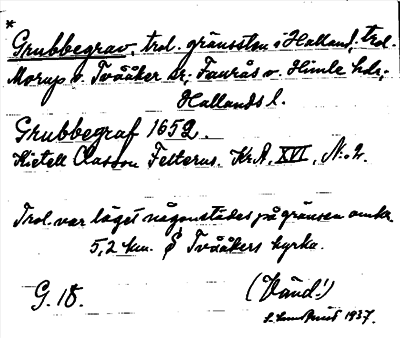 *
Grubbegrav, trol. gränssten i Halland, trol.
Morup o. Tvååker sr; Faurås o. Himle hdr;
Hallands l.
Grubbegraf 1652.
Kietell Classon Felterus. Kr.A. XVI, N:o 2.
Trol. var läget någonstädes på gränsen omkr.
5,2 km. S Tvååkers kyrka.
G. 18.
(Vänd!)
1937.